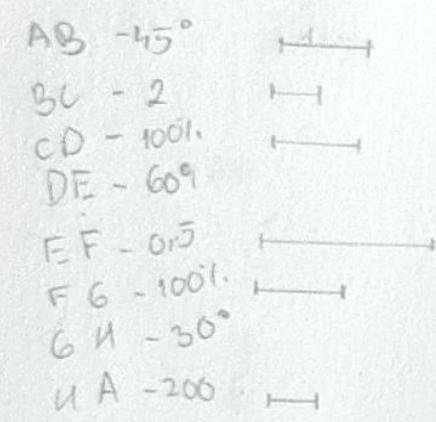 AB - 45°
BC - 2
CD - 100%
DE - 60°
EF - 0,5
FG - 100%
GH - 30°
HA - 200